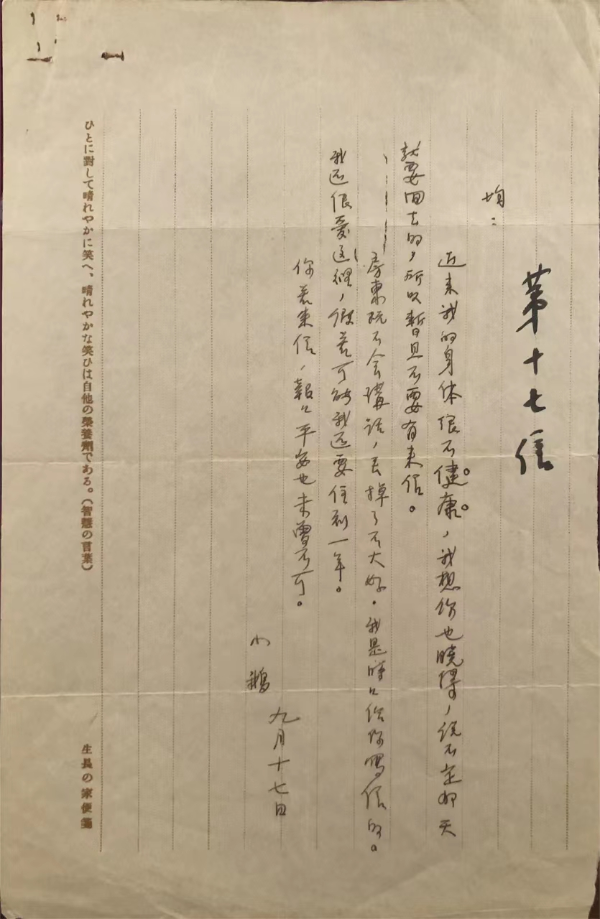 第十七信
均：
近来我的身体很不健康，我想你也晓得，说不定那天
就要回去的，所以暂且不要有来信。
房東既不会講话，丢掉了不大好。我是時时给你写信的。
我还很爱这裡，假若可能我还要住到一年。
你若来信，報报平安也未曾不可。
小鵝
九月十七日
ひとに對して晴れやかに笑へ、晴れやかな笑ひは自他の榮養劑である。（智慧の言葉）
生長の家便箋